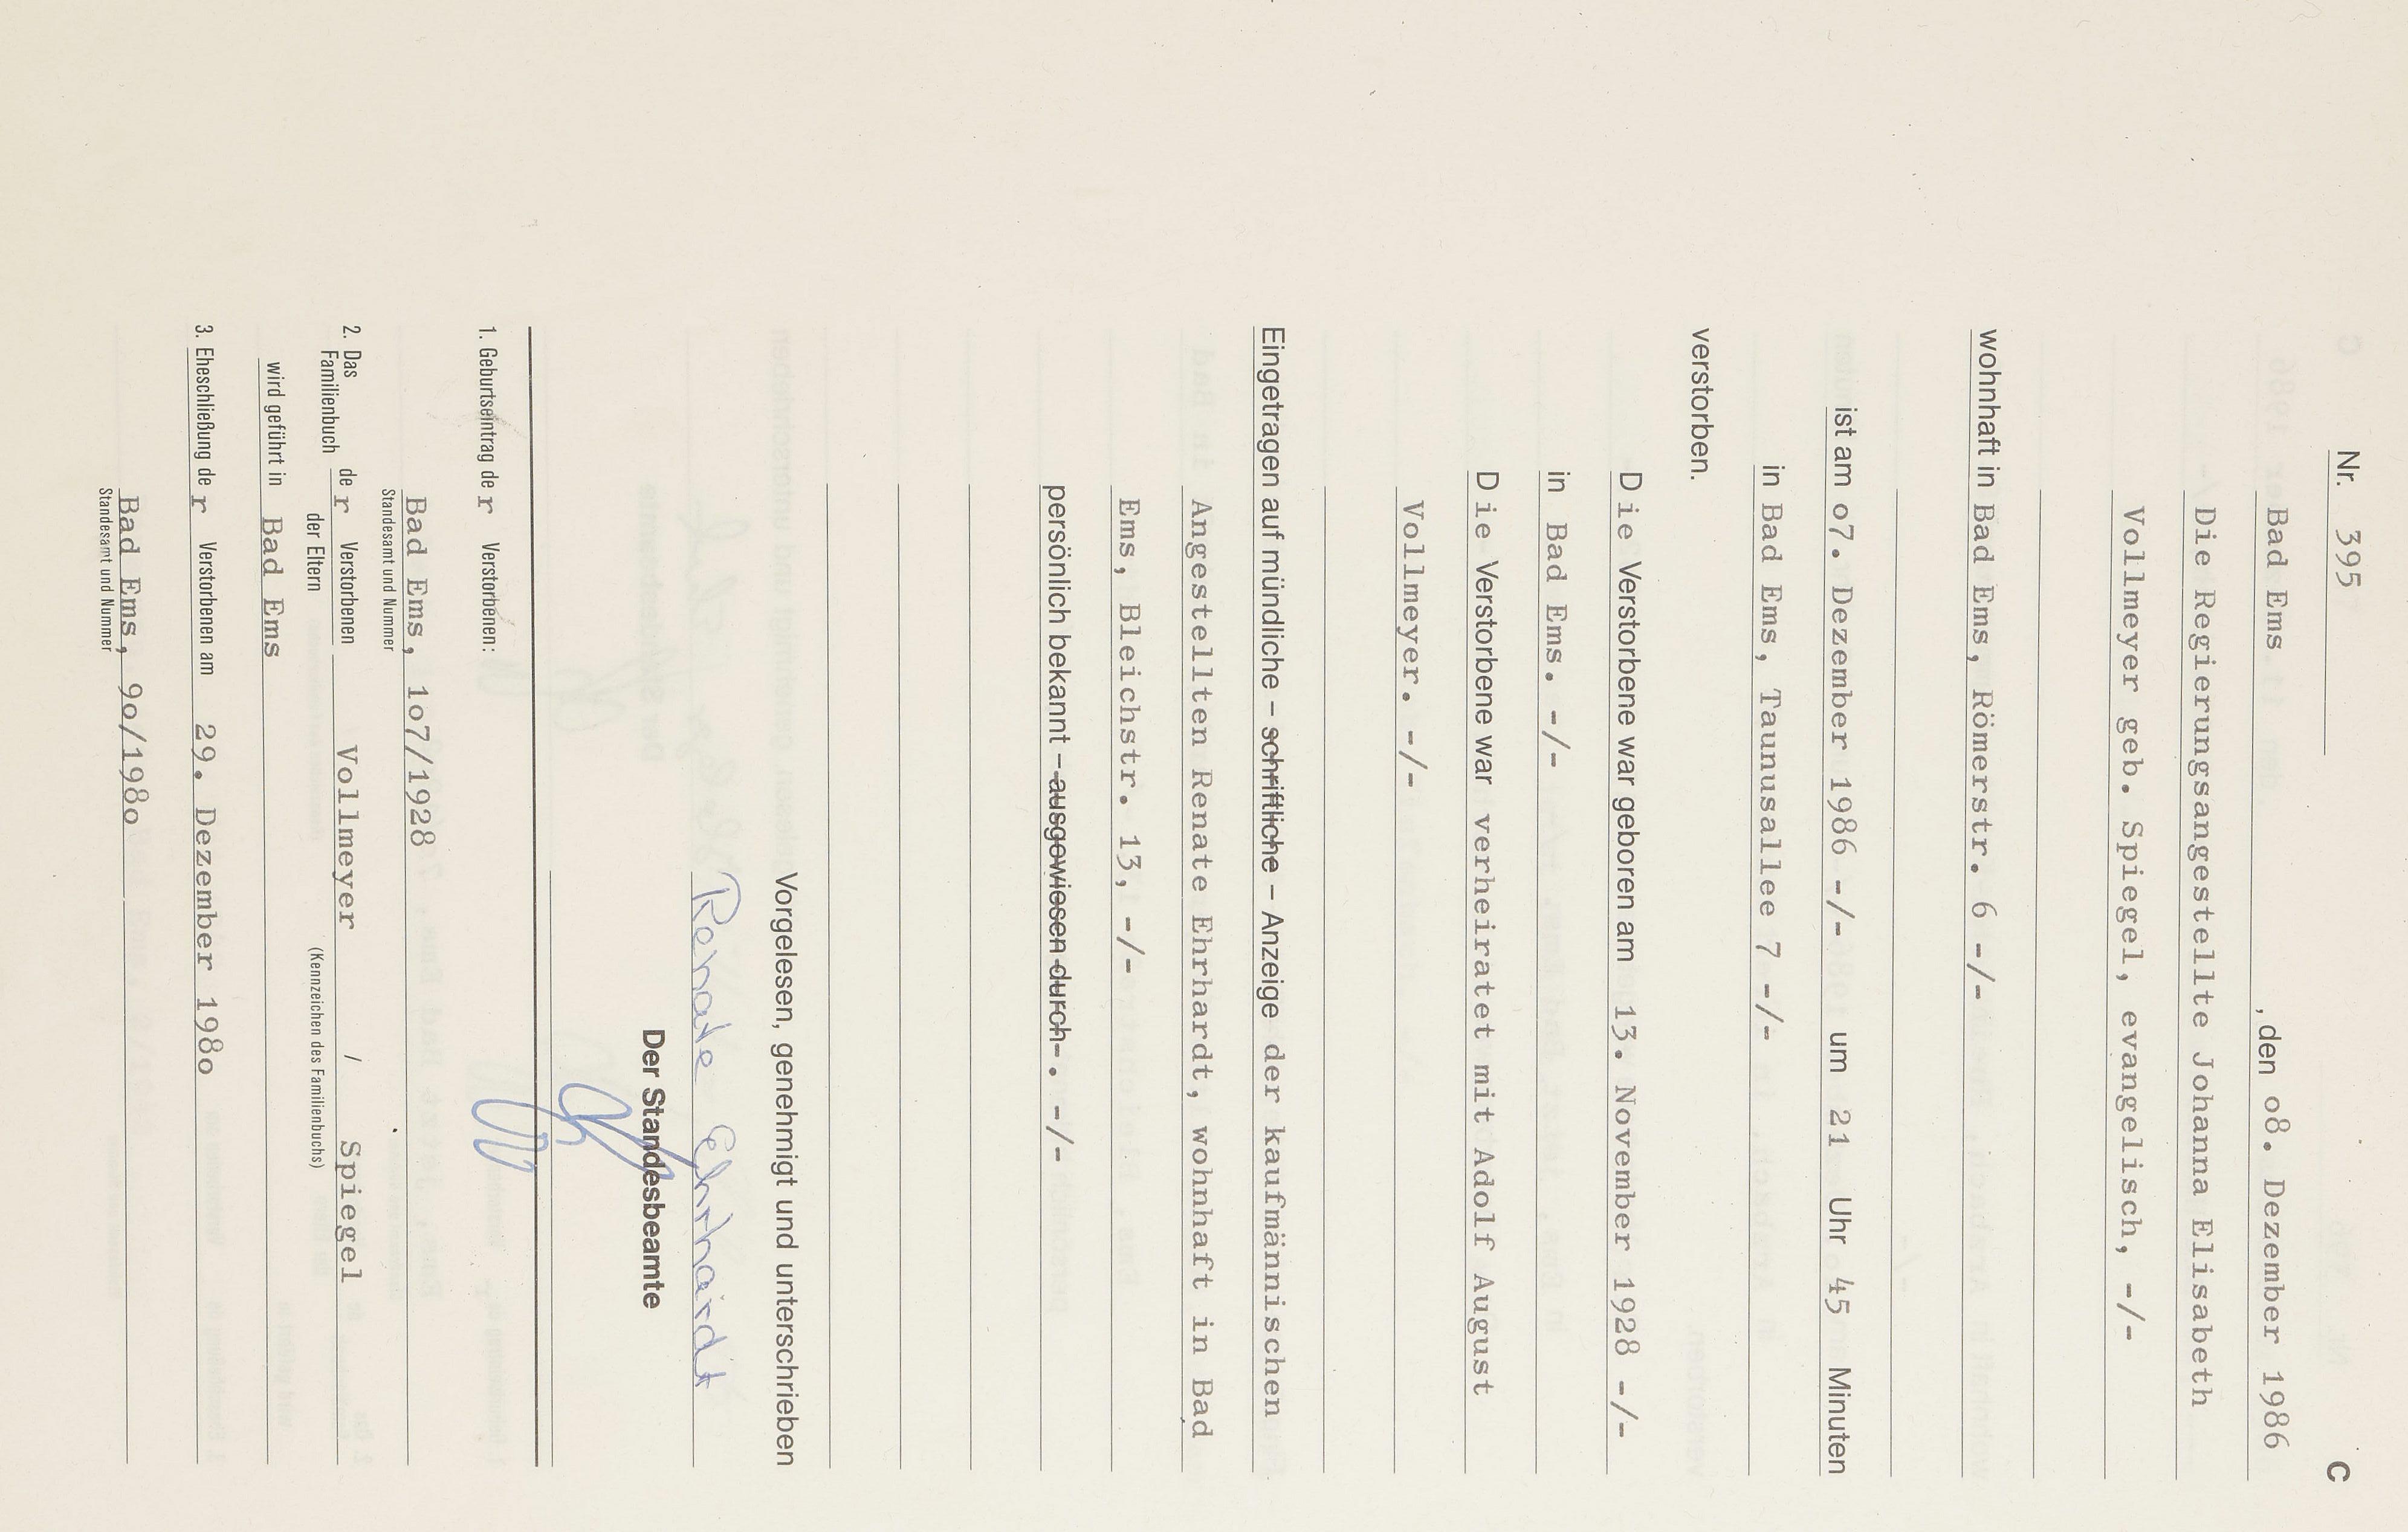 C
Nr. 395
Bad Ems , den o8. Dezember 1986
Die Regierungsangestellte Johanna Elisabeth
Vollmeyer geb. Spiegel, evangelisch, -/-
wohnhaft in Bad Ems, Römerstr. 6 -/-
ist am o7. Dezember 1986 -/- um 21 Uhr 45 Minuten
in Bad Ems, Taunusallee 7 -/-
verstorben.
Die Verstorbene war geboren am 13. November 1928 -/-
in Bad Ems. -/-
Die Verstorbene war verheiratet mit Adolf August
Vollmeyer. -/-
Eingetragen auf mündliche – schriftliche – Anzeige der kaufmännischen
Angestellten Renate Ehrhardt, wohnhaft in Bad
Ems, Bleichstr. 13, -/-
persönlich bekannt – ausgewiesen durch-. -/-
Vorgelesen, genehmigt und unterschrieben
Renate Ehrhardt
Der Standesbeamte
1. Geburtseintrag der Verstorbenen:
Bad Ems, 1o7/1928
Standesamt und Nummer
2. Das Familienbuch der Verstorbenen Vollmeyer / Spiegel
der Eltern (Kennzeichen des Familienbuchs)
wird geführt in Bad Ems
3. Eheschließung der Verstorbenen am 29. Dezember 198o
Bad Ems, 9o/198o
Standesamt und Nummer